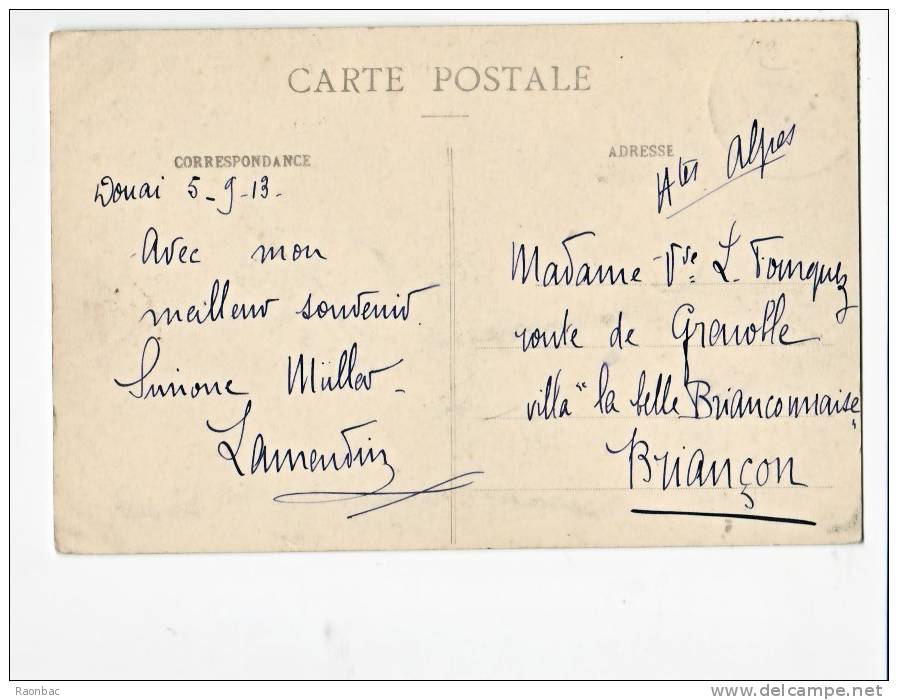 CARTE POSTALE
CORRESPONDANCE
Douai 5-9-13-
Avec mon
meilleur souvenir.
Simone Müller-
Lamendin
ADRESSE
Htes Alpes
Madame Vve L. Fourquez
route de Grenoble
villa "la belle Brianconnaise"
Briançon
Raonbac
delcampe.net